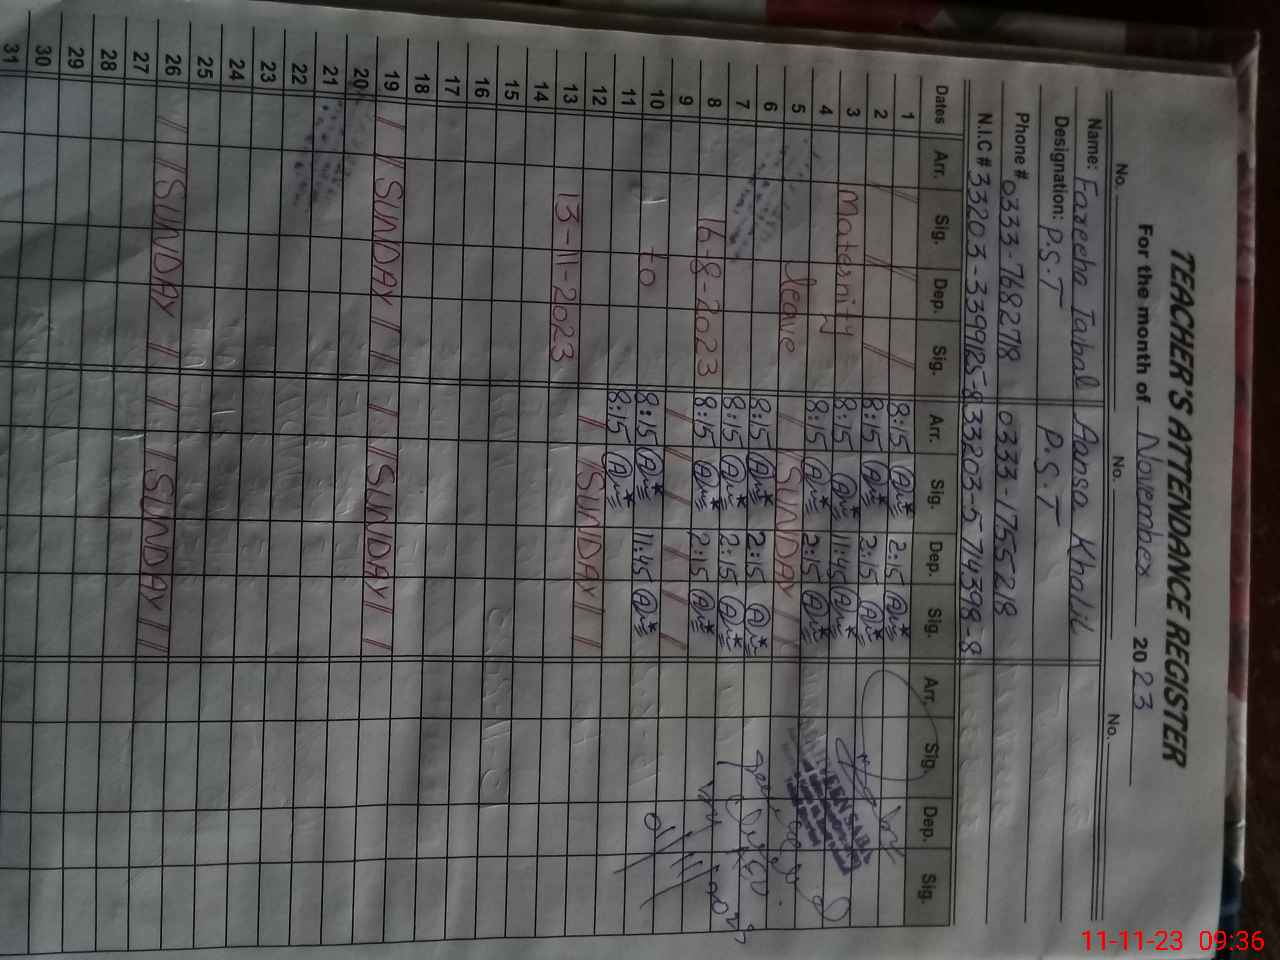 TEACHER'S ATTENDANCE REGISTER
For the month of November 2023
No. No. No.
Name: Fareeha Iqbal Aansa Khalil
Designation: P.S.T P.S.T
Phone # 0333-7682778 0333-1755218
N.I.C # 33203-3399125-8 33203-5714398-8
Dates Arr. Sig. Dep. Sig. Arr. Sig. Dep. Sig. Arr. Sig. Dep. Sig.
1 8:15 2:15
2 8:15 2:15
3 Maternity 8:15 11:45
4 8:15 2:15
5 leave SUNDAY
6 8:15 2:15
7 8:15 2:15
8 16-8-2023 8:15 2:15
9
10 to 8:15 11:45
11 8:15
12 SUNDAY
13 13-11-2023
14
15
16
17
18
19 SUNDAY SUNDAY
20
21
22
23
24
25
26 SUNDAY SUNDAY
27
28
29
30
31
11-11-23 09:36